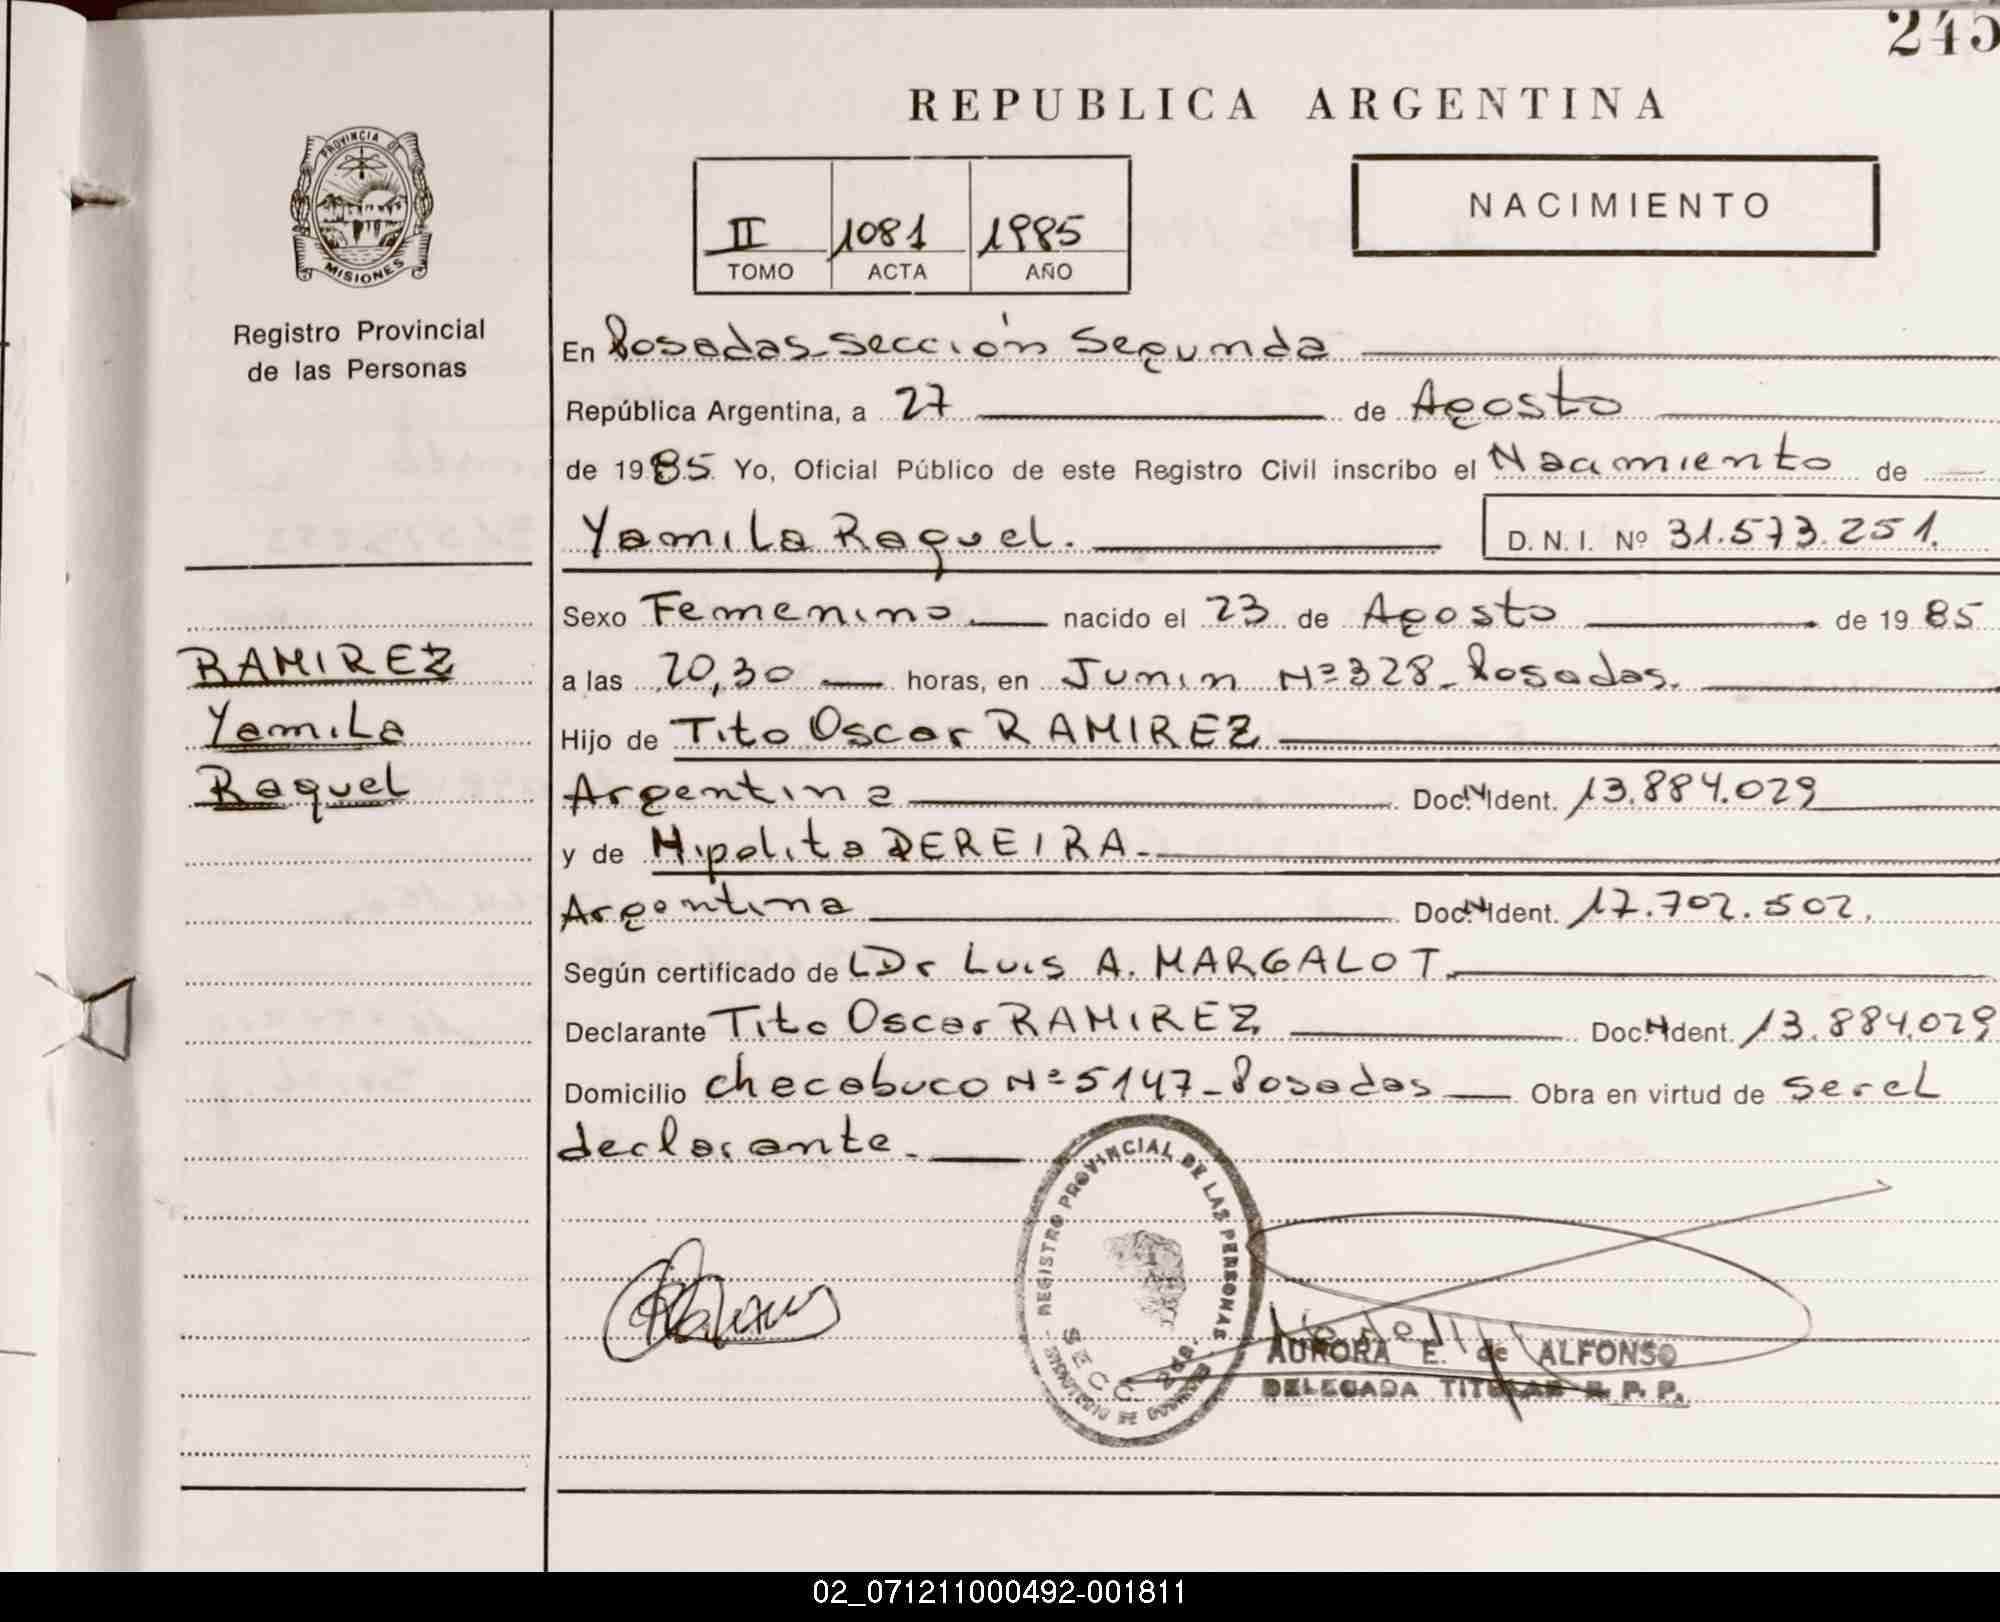 245
REPUBLICA ARGENTINA
PROVINCIA DE
MISIONES
Registro Provincial
de las Personas
II 1081 1985
TOMO ACTA AÑO
NACIMIENTO
En Posadas Sección Segunda
República Argentina, a 27 de Agosto
de 1985 Yo, Oficial Público de este Registro Civil inscribo el Nacimiento de
Yamila Raquel.
D. N. I. Nº 31.573.251.
Sexo Femenino nacido el 23 de Agosto de 1985
RAMIREZ
Yamila
Raquel
a las 20,30 horas, en Junin Nº 328 - Posadas.
Hijo de Tito Oscar RAMIREZ
Argentina Doc. N Ident. 13.884.029
y de Hipolita PEREIRA.-
Argentina Doc. N Ident. 17.702.502.
Según certificado de L Dr Luis A. MARGALOT.
Declarante Tito Oscar RAMIREZ Doc. N Ident. 13.884.029
Domicilio Chacabuco Nº 5147 - Posadas Obra en virtud de ser el
declarante.
REGISTRO PROVINCIAL DE LAS PERSONAS
SECC. 2da.
MINISTERIO DE GOBIERNO
AURORA E. de ALFONSO
DELEGADA TITULAR R. P. P.
02_071211000492-001811